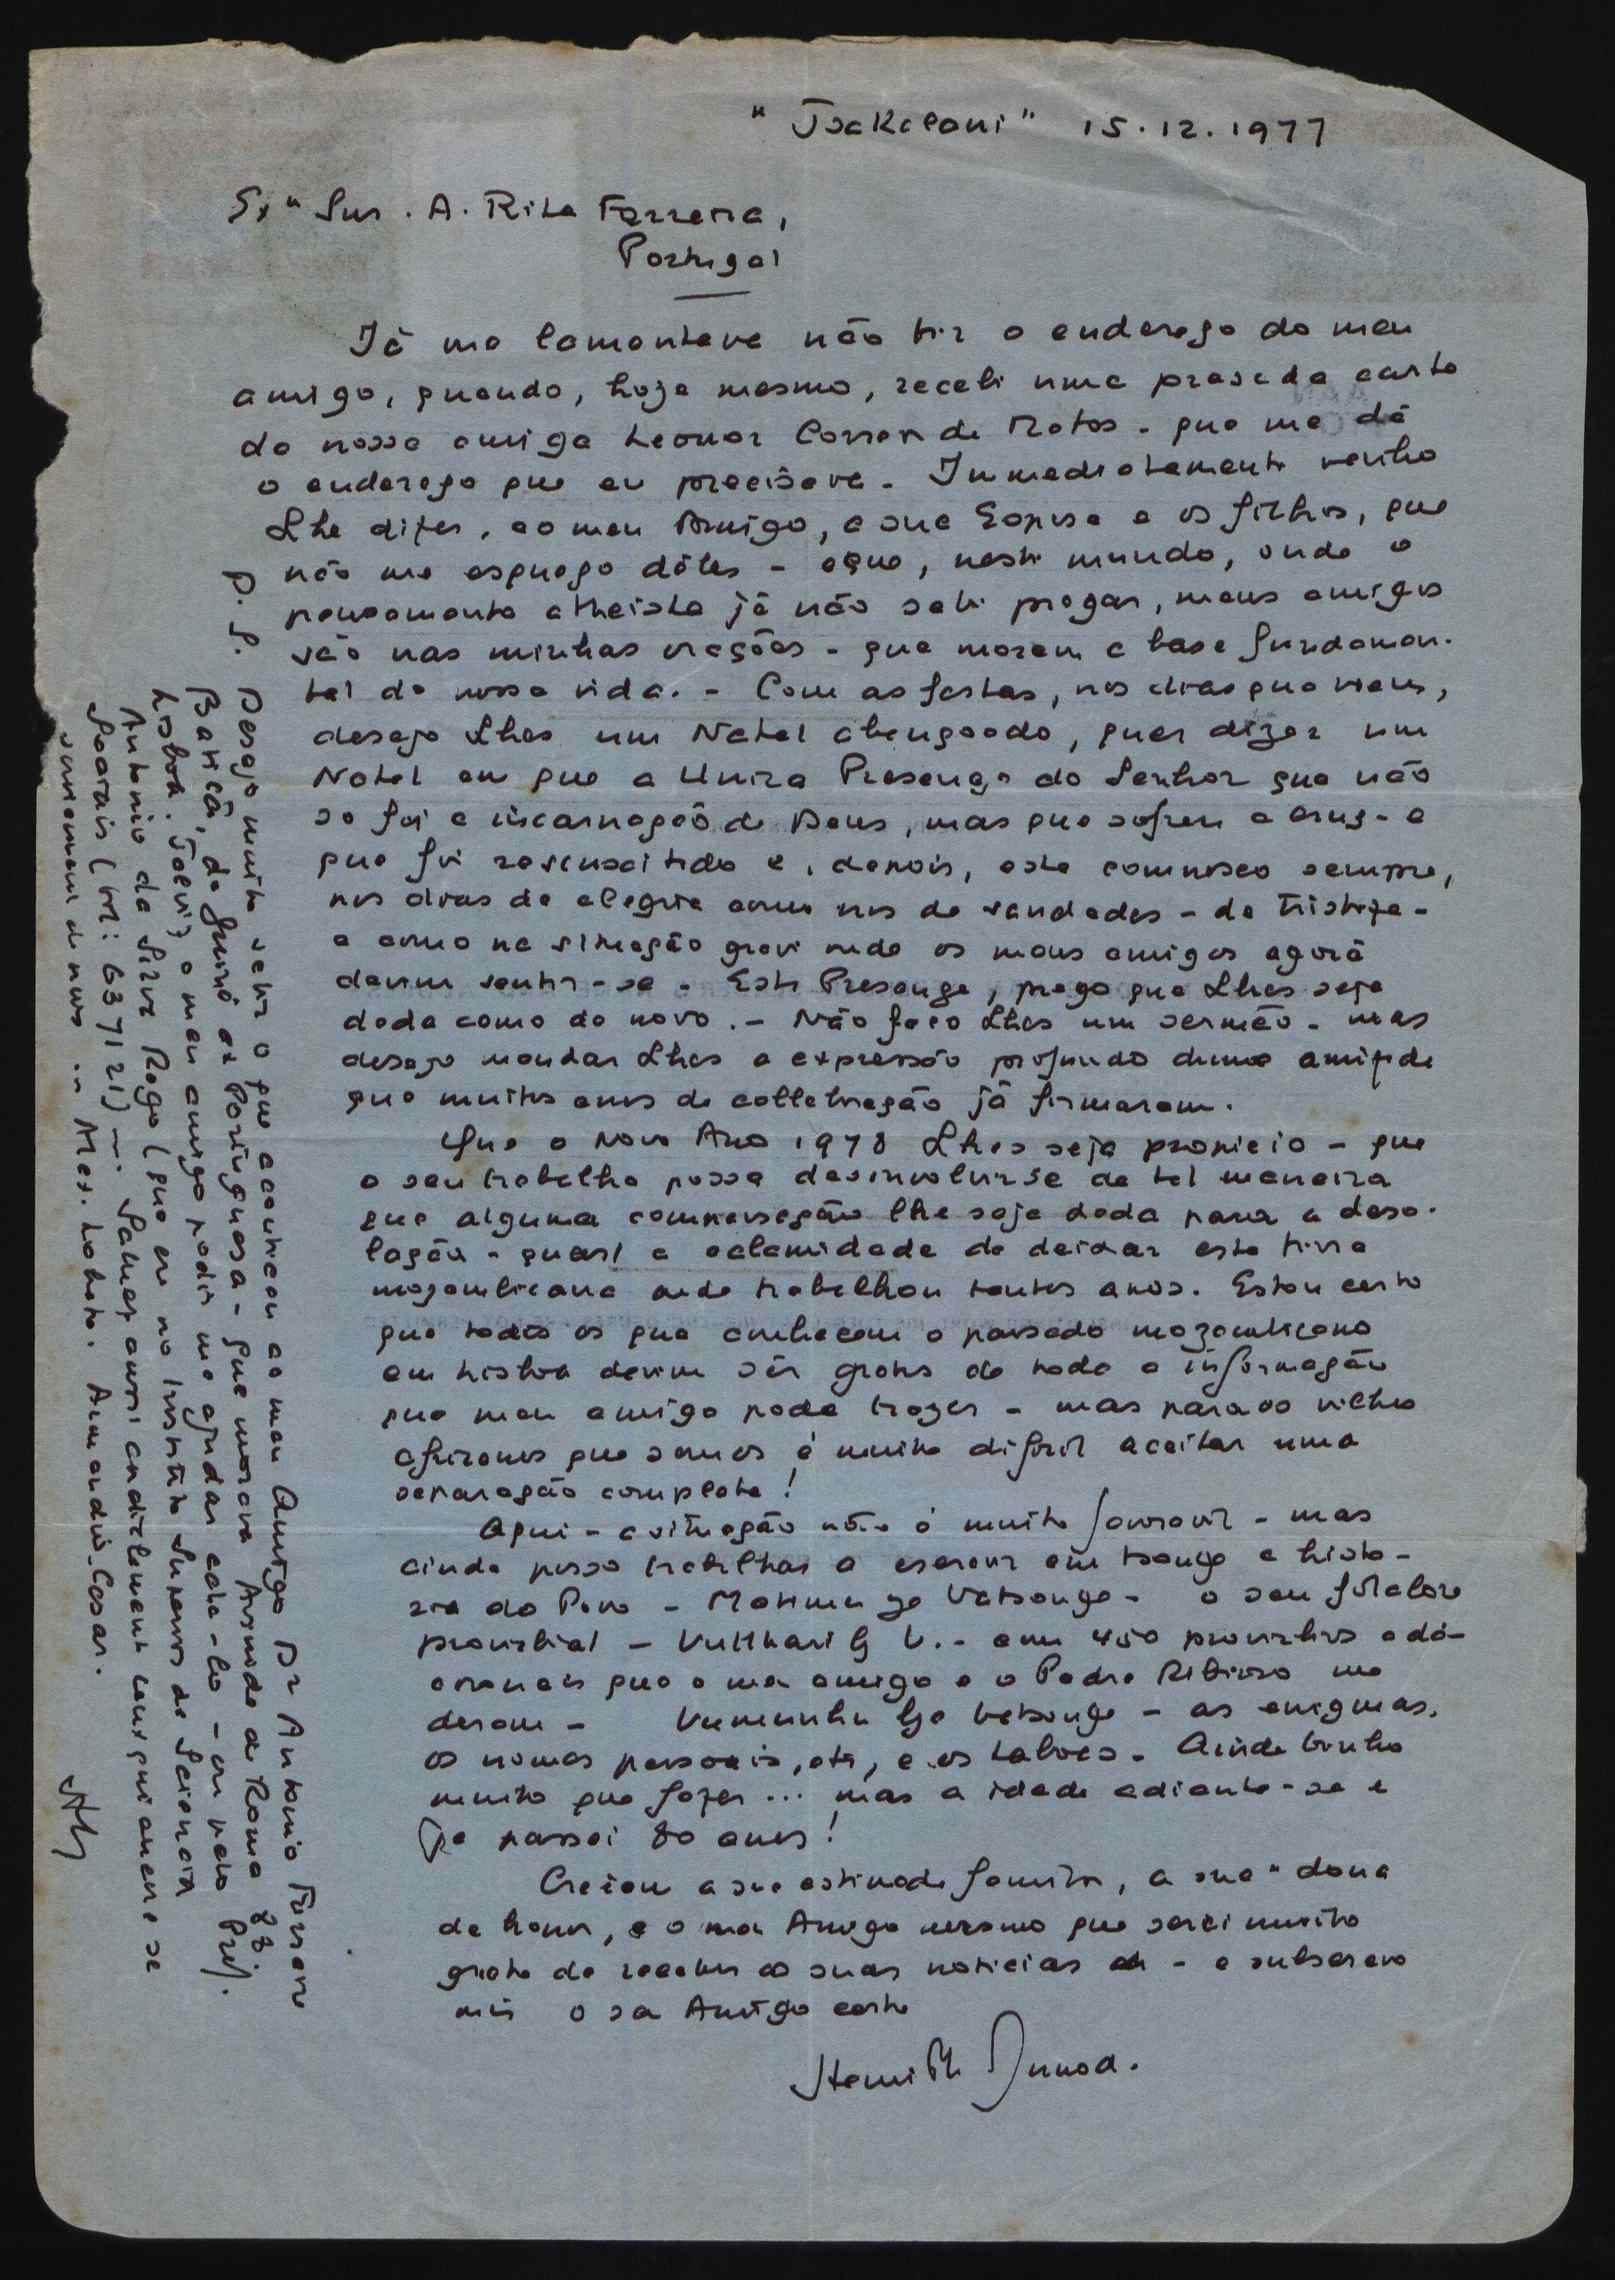 " Tsakelani " 15.12.1977
Exº Snr. A. Rita Ferreira,
Portugal
Já me lamentava não ter o enderego do meu
amigo, quando, hoje mesmo, recebi uma prasada carta
da nossa amiga Leonor Correa de Matos - que me dá
o enderego que eu precisava - Immediatamente venho
Lhe dizer, ao meu Amigo, a sua Esposa e os filhos, que
não me esquego dêles - e que, neste mundo, onde o
pensamento atheista já não sabe pregar, meus amigos
são nas minhas oragões - que
a base fundamen-
tal da nossa vida. - Com as festas, nos dias que vem,
desejo Lhes um Natal abengoado, quer dizer um
Natal em que a Unica Presenga do Senhor que não
so foi a incarnagão de Deus, mas que sofreu a cruz - e
que foi ressuscitado e, depois, esta comnosco sempre,
nos dias de alegria como nos de saudades - de tristeza -
e como na situagão grave onde os meus amigos agora
devem sentir-se - Esta Presenga, prego que Lhes seja
dada como de novo. - Não fago Lhes um sermão - mas
desejo mandar Lhes a expressão profunda duma amizade
que muitos anos de collaboragão já firmaram.
Que o Novo Ano 1978 Lhes seja propicio - que
o seu trabalho possa desinvolvirse de tal maneira
que alguma compensagão lhe seja dada para a deso-
lagão - quasi a calamidade de deixar esta terra
mozambicana onde trabalhou tantos anos. Estou certo
que todos os que conhecem o passado mozambicano
em Lisboa devem sêr gratos de toda a informagão
que meu amigo pode trazer - mas para os velhos
africanos que somos é muito dificil aceitar uma
separagão completa !
Aqui - a situagão não é muito favoravel - mas
ainda posso trabalhar a escrever em tsonga a histo-
ria do Povo - Matimu ya Vatsonga - o seu folclore
proverbial - Vutlhari by V. - com 450 proverbios
que o meu amigo e o Padre Ribeiro me
deram - Vumunhu bya Vatsonga - as enigmas,
os nomes pessoais, etc, e os taboes. Ainda tenho
muito que fazer ... mas a idade adianta-se e
ja passei 80 anos !
Creiam a sua estimada familia, a sua " dona
de honor, e o meu Amigo mesmo que serei muito
grato de receber as suas noticias - e subscrevo
me o seu Amigo certo
Henri Ph Junod.
P. S. Desejo muito saber o que aconteceu ao meu Amigo Dr Antonio
Baticã, da Guiné ex Portuguesa - que morava Avenida de Roma
Lisboa. Talvez o meu amigo podia me ajudar acha-lo - ou pelo Prof.
Antonio da Silva Rego (que era no Instituto Superior de Sciencias
Soçais (tel: 637121) -